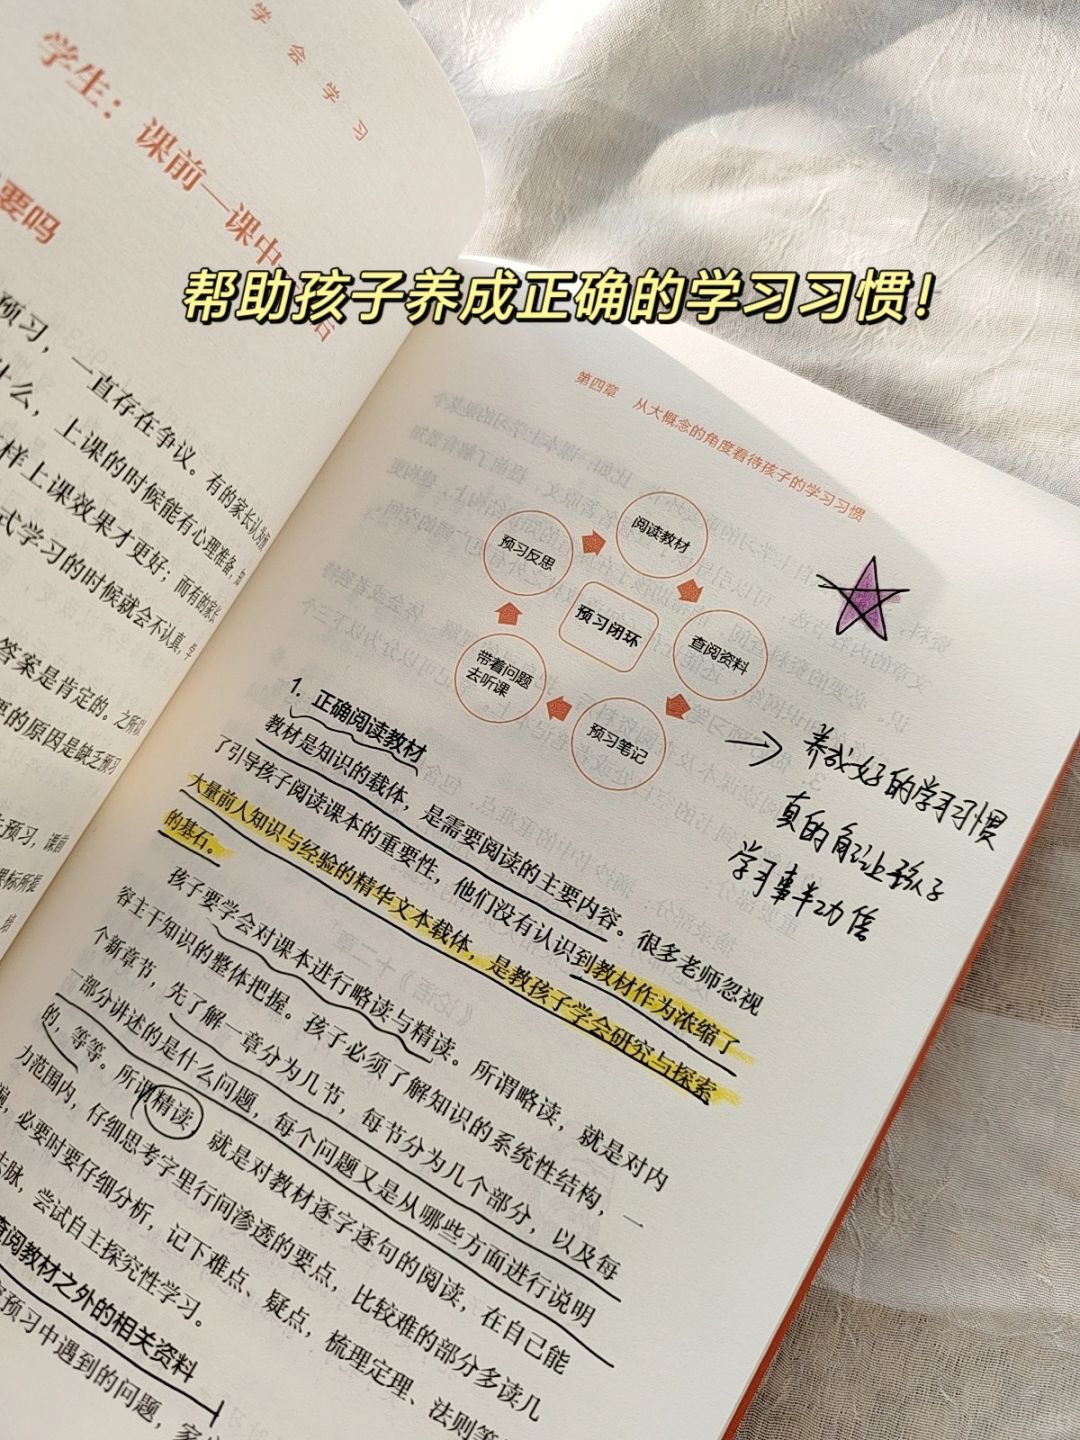 学会学习
学生：课前—课中
要吗
预习，一直存在争议。有的家长认为预
什么，上课的时候能有心理准备，知
样上课效果才更好；而有的家长
式学习的时候就会不认真，学
答案是肯定的。之所以
要的原因是缺乏预习
预习，课前
课标所提
帮助孩子养成正确的学习习惯！
第四章 从大概念的角度看待孩子的学习习惯
阅读教材
预习反思
预习闭环
查阅资料
带着问题
去听课
预习笔记
养成好的学习习惯
真的能让孩子
学习事半功倍
1. 正确阅读教材
教材是知识的载体，是需要阅读的主要内容。很多老师忽视
了引导孩子阅读课本的重要性，他们没有认识到教材作为浓缩了
大量前人知识与经验的精华文本载体，是教孩子学会研究与探索
的基石。
孩子要学会对课本进行略读与精读。所谓略读，就是对内
容主干知识的整体把握。孩子必须了解知识的系统性结构，一
个新章节，先了解一章分为几节，每节分为几个部分，以及每
一部分讲述的是什么问题，每个问题又是从哪些方面进行说明
的，等等。所谓精读，就是对教材逐字逐句的阅读，在自己能
力范围内，仔细思考字里行间渗透的要点，比较难的部分多读几
遍，必要时要仔细分析，记下难点、疑点，梳理定理、法则等
去脉，尝试自主探究性学习。
查阅教材之外的相关资料
预习中遇到的问题，家